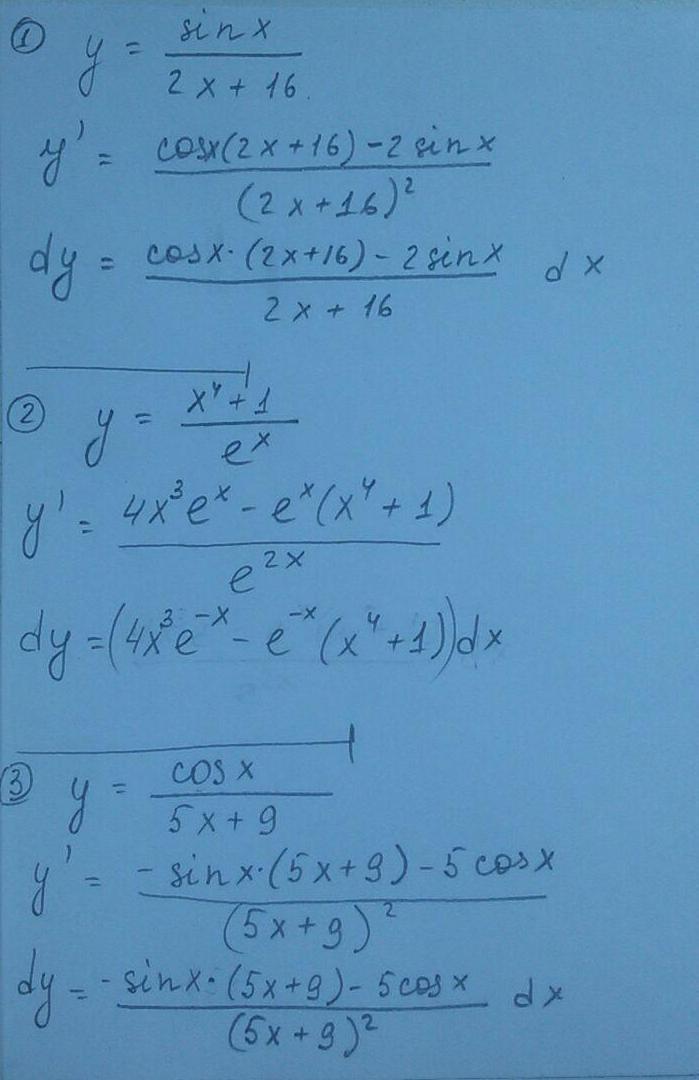 ① y = sinx / 2x + 16.
y' = cosx(2x+16) - 2sinx / (2x+16)²
dy = cosx·(2x+16) - 2sinx / 2x + 16 dx
② y = x⁴+1 / eˣ
y' = 4x³eˣ - eˣ(x⁴+1) / e²ˣ
dy = (4x³e⁻ˣ - e⁻ˣ(x⁴+1))dx
③ y = cosx / 5x+9
y' = -sinx·(5x+9) - 5cosx / (5x+9)²
dy = -sinx·(5x+9) - 5cosx / (5x+9)² dx